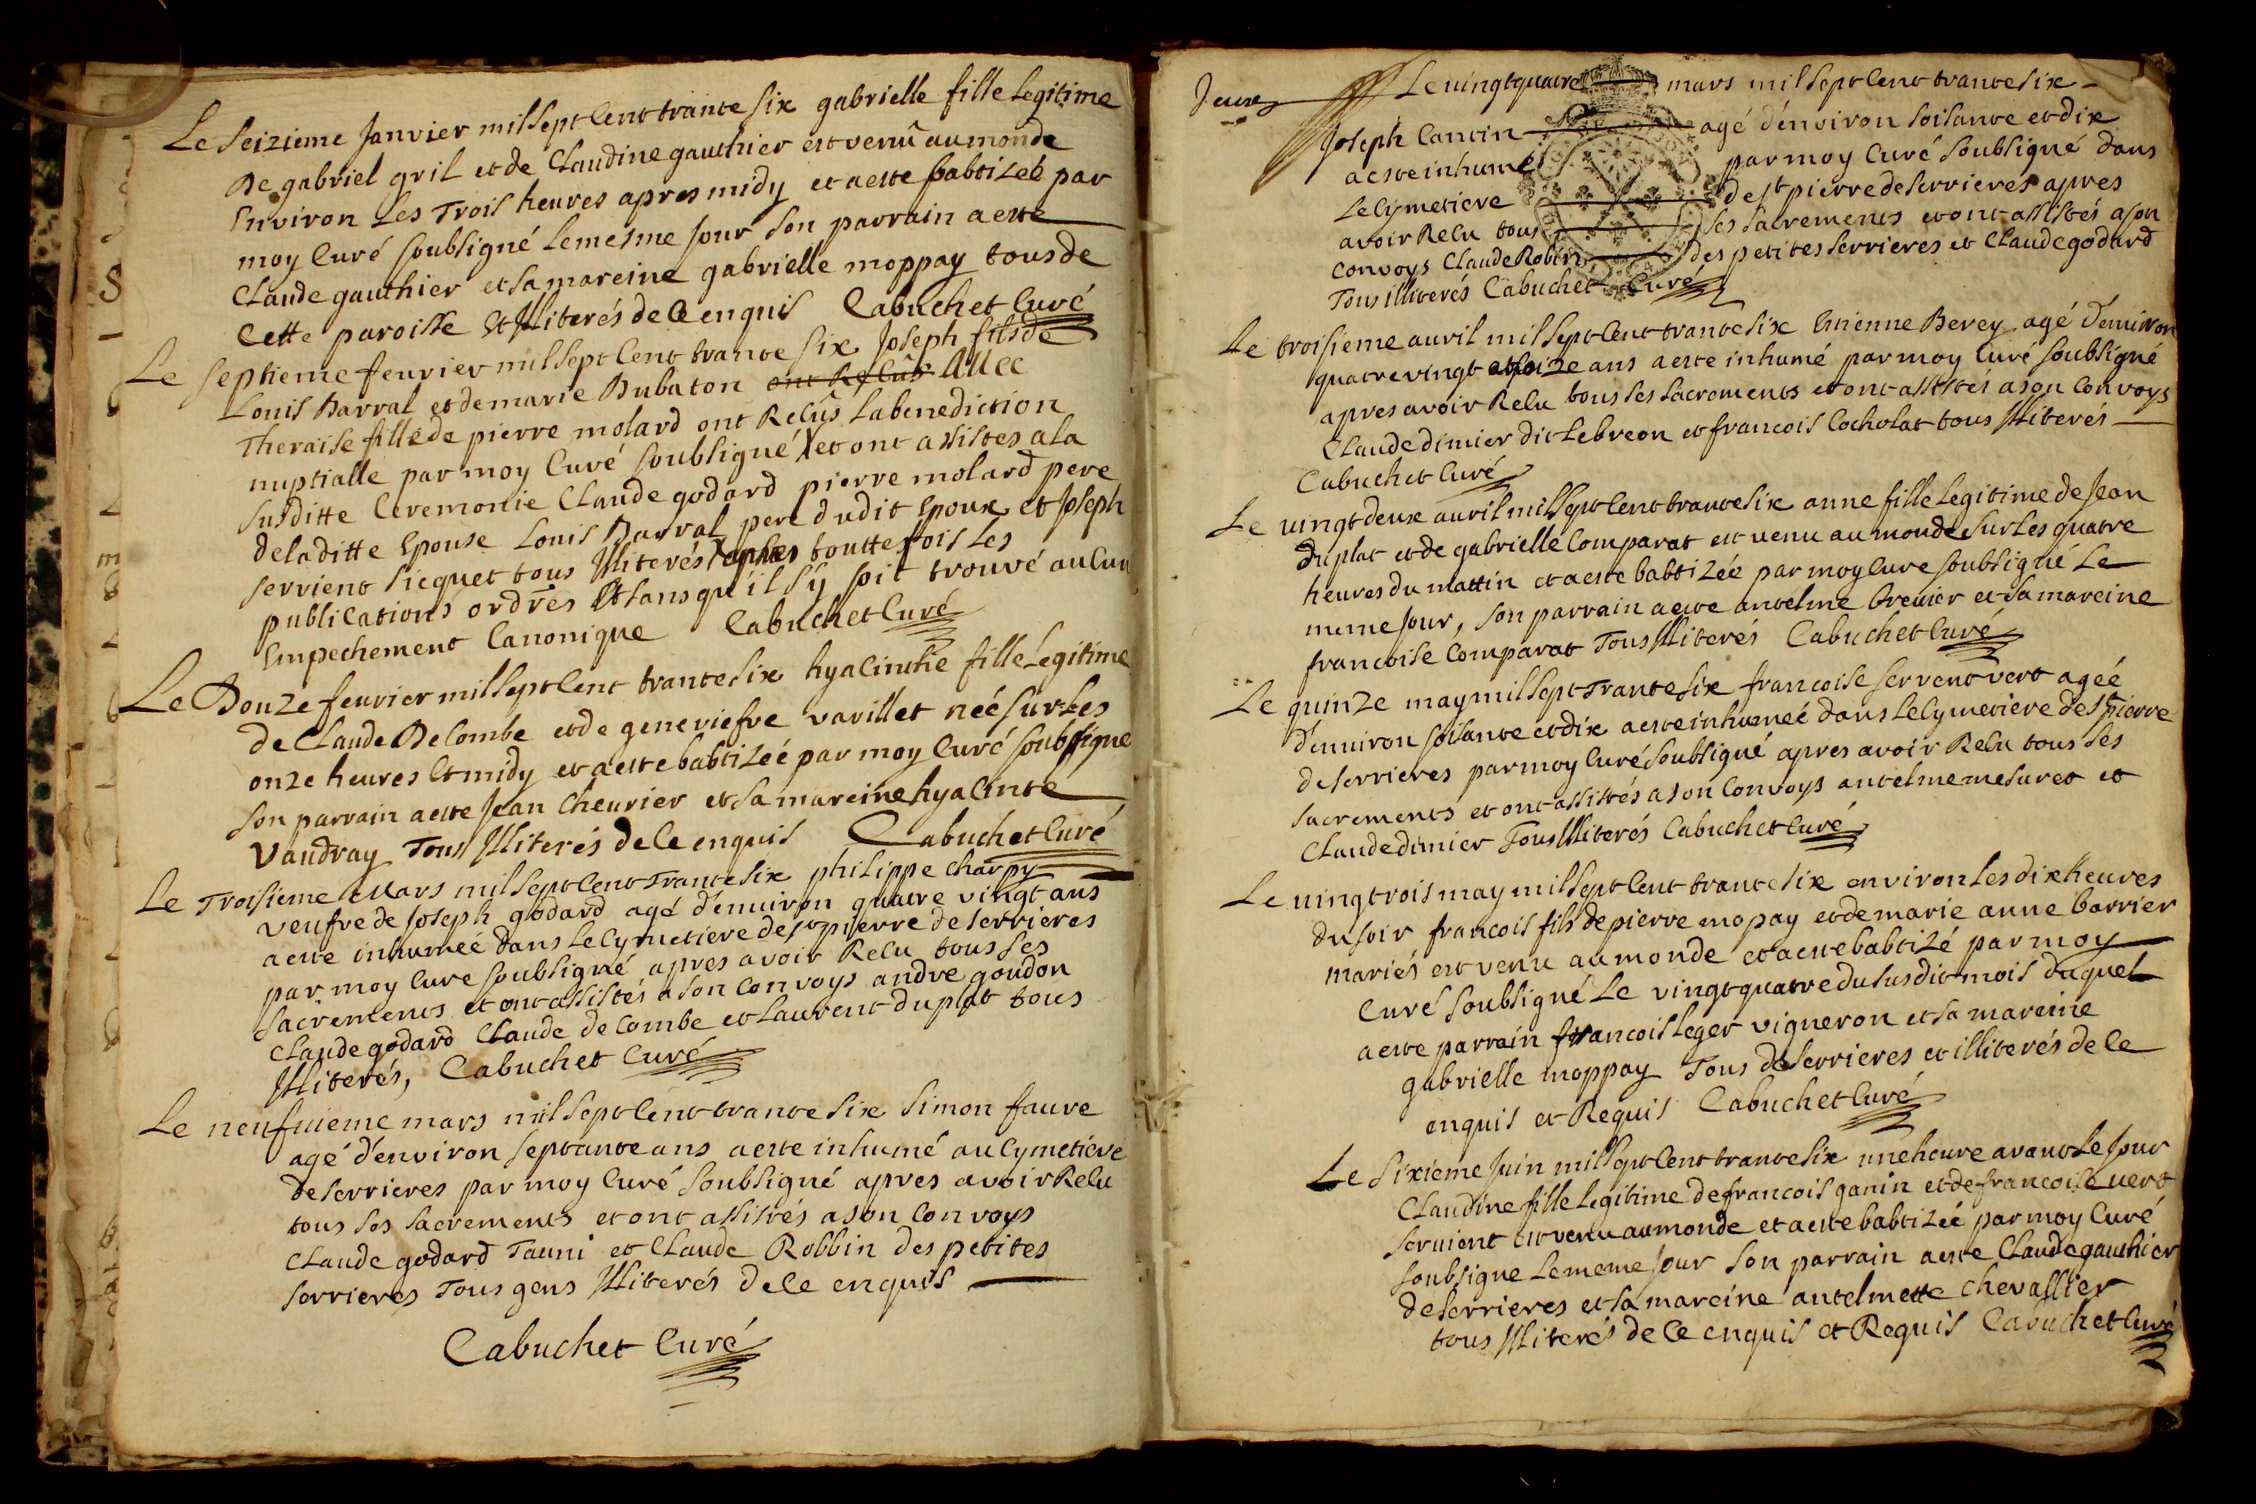 Le Seizieme Janvier mil Sept Cent trante Six gabrielle fille Legitime
De gabriel gril et de Claudine gauthier est venu au monde
Environ Les Trois heures apres midy et a este babtizeé par
moy Curé soubsigné Le mesme Jour Son parrain a este
Claude gauthier et sa mareine gabrielle moppay tous de
Cette paroisse Et Illiterés de Ce enquis Cabuchet Curé
Le septieme feurier mil Sept Cent trante Six Joseph fils de
Louis Barral et de marie Dubaton ont Reçus Auec
Theraise fille de pierre molard ont Reçûs La benediction
nuptialle par moy Curé soubsigné et ont assistes a la
susditte Ceremonie Claude godard pierre molard pere
de la ditte Epouse Louis Barral pere du dit Epoux et Joseph
servient sicquet tous Illiterés apres touttefois Les
publications ordres Et sans qu'il s'y soit trouvé aucun
Empechement Canonique Cabuchet Curé
Le Douze feurier mil Sept Cent trante Six hyacinthe fille Legitime
de Claude De Combe et de geneviefve varillet neé sur Les
onze heures Et midy et a este babtizeé par moy Curé soubsigné
Son parrain a este Jean Cheurier et sa mareine hyacinte
Vaudray Tous Illiterés de Ce enquis Cabuchet Curé
Le Troisieme Mars mil Sept Cent Trante Six philippe Charpy
veufve de Joseph godard agé d'enuiron quatre vingt ans
a este inhumeé dans Le Cymetiere de st pierre de serrieres
par moy Cure soubsigné apres avoir Recu tous ses
sacrements et ont assistés a son Convoys andre goudon
Claude godard Claude de Combe et Laurent duplat tous
Illiterés, Cabuchet Curé
Le neufuieme mars mil Sept Cent trante Six Simon faure
agé d'environ septante ans a este inhumé au Cymetiere
de serrieres par moy Curé soubsigné apres avoir Recu
tous ses sacrements et ont assistés a son Convoys
Claude godard Tauni et Claude Robbin des petites
serrieres Tous gens Illiterés de Ce enquis
Cabuchet Curé
Le vingt quatre mars mil Sept Cent trante six
Joseph Cantin agé d'environ soisante et dix
a este inhumé par moy Curé soubsigné dans
Le Cymetiere de st pierre de serrieres apres
avoir Recu tous ses sacrements et ont assistés a son
convoys Claude Robin des petites serrieres et Claude godard
Tous illiterés Cabuchet Curé
Le troisieme auril mil sept Cent trante six Etienne Berey agé d'enuiron
quatre vingt et ans a este inhumé par moy Curé soubsigné
apres avoir Recu tous ses sacrements et ont assistés a son Convoys
Claude dimier dit Lebreon et francois Cocholat tous Illiterés
Cabuchet Curé
Le vingt deux auril mil sept Cent trante six anne fille Legitime de Jean
duplat et de gabrielle Comparat est venu au monde sur Les quatre
heures du mattin et a este babtizée par moy Cure soubsigné Le
meme Jour, son parrain a este antelme breuier et sa mareine
francoise Comparat Tous Illiterés Cabuchet Curé
Le quinze may mil sept Trante six francoise servent vert ageé
d'enuiron soisante et dix a este inhumeé dans Le Cymetiere de st pierre
de serrieres par moy Curé soubsigné apres avoir Recu tous ses
sacrements et ont assistés a son Convoys antelme mesuret et
Claude dimier Tous Illiterés Cabuchet Curé
Le vingt trois may mil sept Cent trante six environ Les dix heures
du soir francois fils de pierre mopay et de marie anne barrier
mariés est venu au monde et a este babtizé par moy
Curé soubsigné Le vingt quatre du susdit mois duquel
a este parrain francois Leger vigneron et sa mareine
gabrielle moppay Tous de serrieres et illiterés de Ce
enquis et Requis Cabuchet Curé
Le sixieme Juin mil sept Cent trante six une heure avant Le Jour
Claudine fille Legitime de francois ganin et de francoise vert
seruient est venu au monde et a este babtizeé par moy Curé
soubsigne Le meme Jour son parrain a este Claude gauthier
de serrieres et sa mareine antelmette Chevallier
tous Illiterés de Ce enquis et Requis Cabuchet Curé